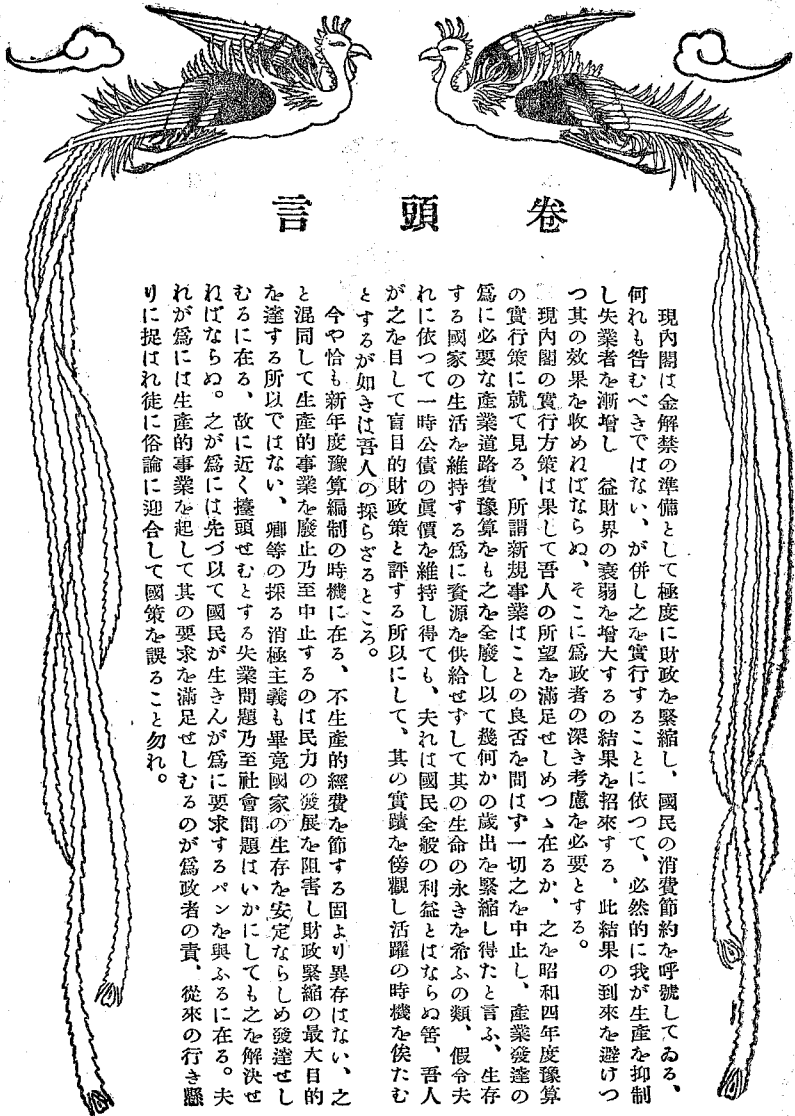 卷頭言
現內閣は金解禁の準備として極度に財政を緊縮し、國民の消費節約を呼號してゐる、
何れも咎むべきではない、が併し之を實行することに依つて、必然的に我が生產を抑制
し失業者を漸增し 益財界の衰弱を增大するの結果を招來する、此結果の到來を避けつ
つ其の效果を收めねばならぬ、そこに爲政者の深き考慮を必要とする。
現內閣の實行方策は果して吾人の所望を滿足せしめつゝ在るか、之を昭和四年度豫算
の實行策に就て見る、所謂新規事業はことの良否を問はず一切之を中止し、產業發達の
爲に必要な產業道路費豫算をも之を全廢し以て幾何かの歲出を緊縮し得たと言ふ、生存
する國家の生活を維持する爲に資源を供給せずして其の生命の永きを希ふの類、假令夫
れに依つて一時公債の眞價を維持し得ても、夫れは國民全般の利益とはならぬ筈、吾人
が之を目して盲目的財政策と評する所以にして、其の實蹟を傍觀し活躍の時機を俟たむ
とするが如きは吾人の採らざるところ。
今や恰も新年度豫算編制の時機に在る、不生產的經費を節する固より異存はない、之
と混同して生產的事業を廢止乃至中止するのは民力の發展を阻害し財政緊縮の最大目的
を達する所以ではない、卿等の採る消極主義も畢竟國家の生存を安定ならしめ發達せし
むるに在る、故に近く擡頭せむとする失業問題乃至社會問題はいかにしても之を解決せ
ねばならぬ。之が爲には先づ以て國民が生きんが爲に要求するパンを與ふるに在る。夫
れが爲には生產的事業を起して其の要求を滿足せしむるのが爲政者の責、從來の行き懸
りに捉はれ徒に俗論に迎合して國策を誤ること勿れ。